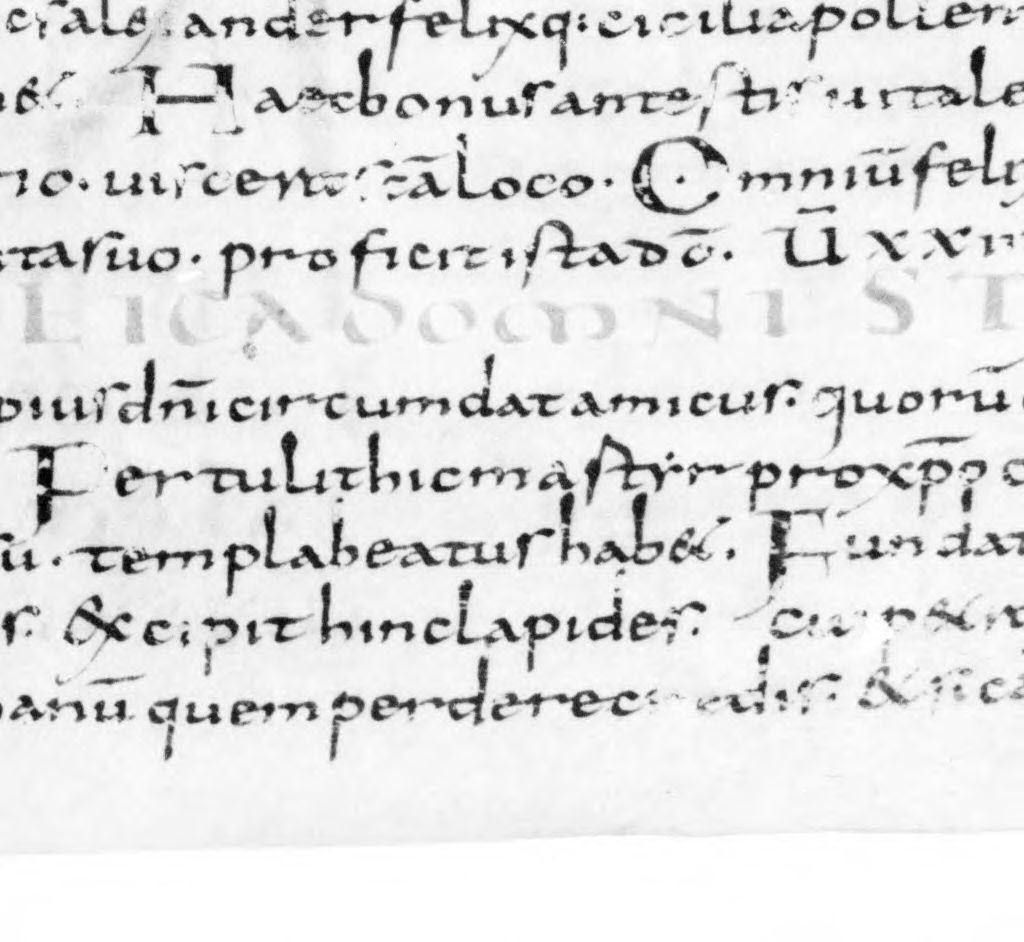 ersales. ander felixq: cicilia pollen
Haec bonus antestis uitale
rio. uiscent scā loco. Omniū felix
tasuo. proficit ista dō. Ū xxii
LICA DOMNI ST
pius dñi circumdat amicus. quorū
Pertulit hic mastyr pro xp̄o
su. templa beatus hab&. Fundat
s. &cipit hinc lapides. cum p&r
anū quem perdere credis. & sica